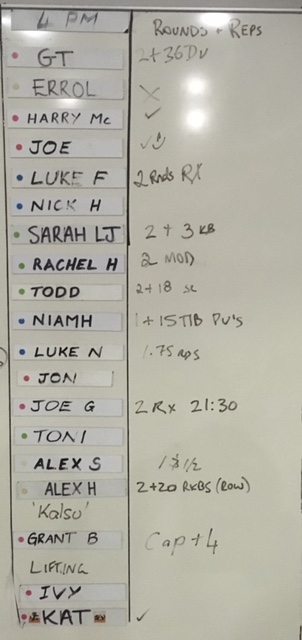 4 PM ROUNDS + REPS
GT 2+36DU
ERROL X
HARRY Mc ✓
JOE ✓
LUKE F 2 Rnds RX
NICK H
SARAH LJ 2 + 3 KB
RACHEL H 2 MOD
TODD 2+18 sc
NIAMH 1+15 TTB PU's
LUKE N 1.75 rds
JON
JOE G 2 Rx 21:30
TONI
ALEX S
ALEX H 2+20 RKBS (ROW)
'Kalsu'
GRANT B Cap+4
LIFTING
IVY
KAT ✓